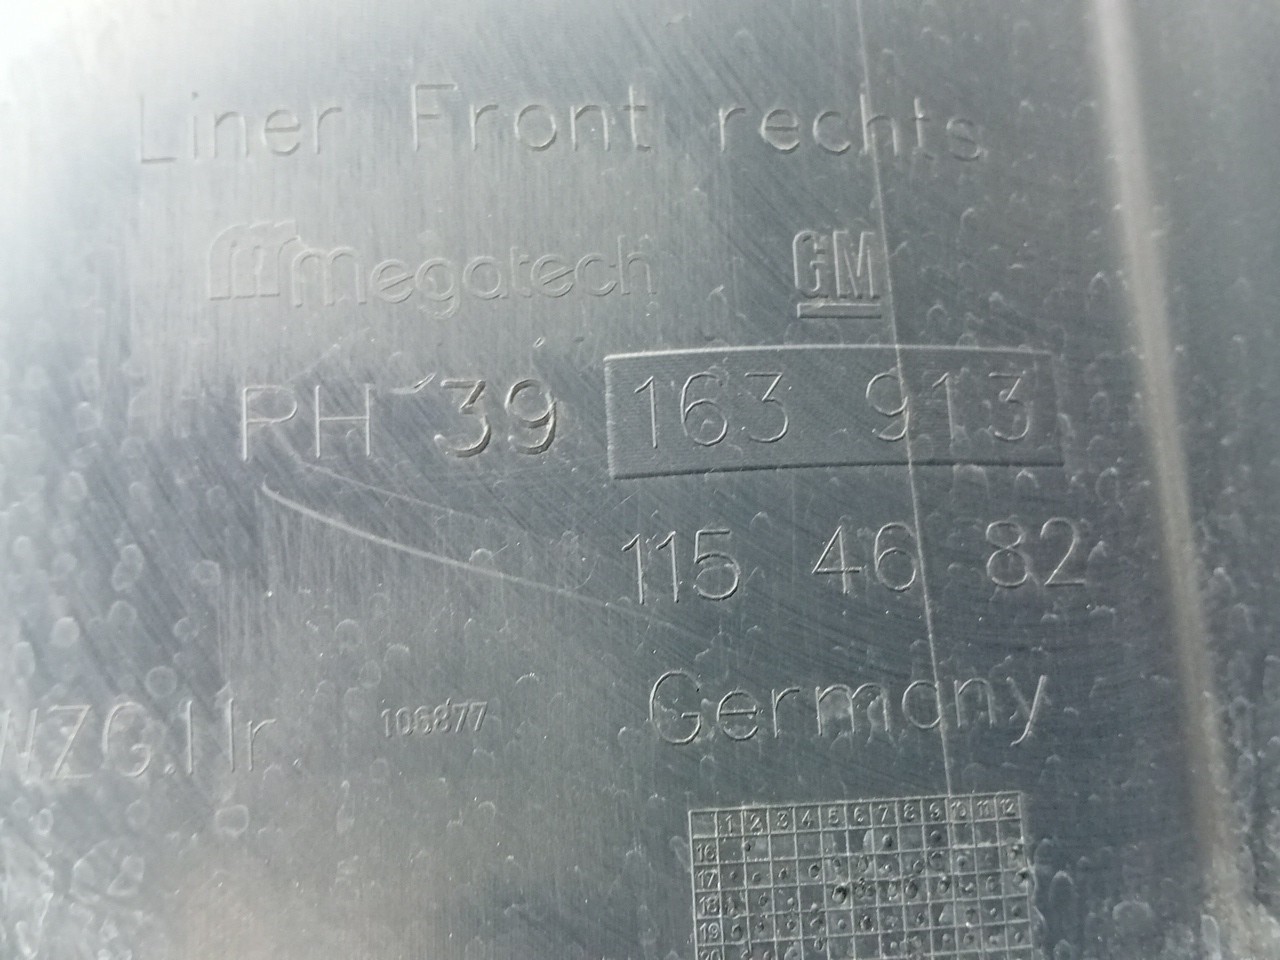 Liner Front rechts
megatech GM
RH 39 163 913
115 46 82
WZG.Nr. 106877 Germany
1 2 3 4 5 6 7 8 9 10 11 12
16
17
18
19
20